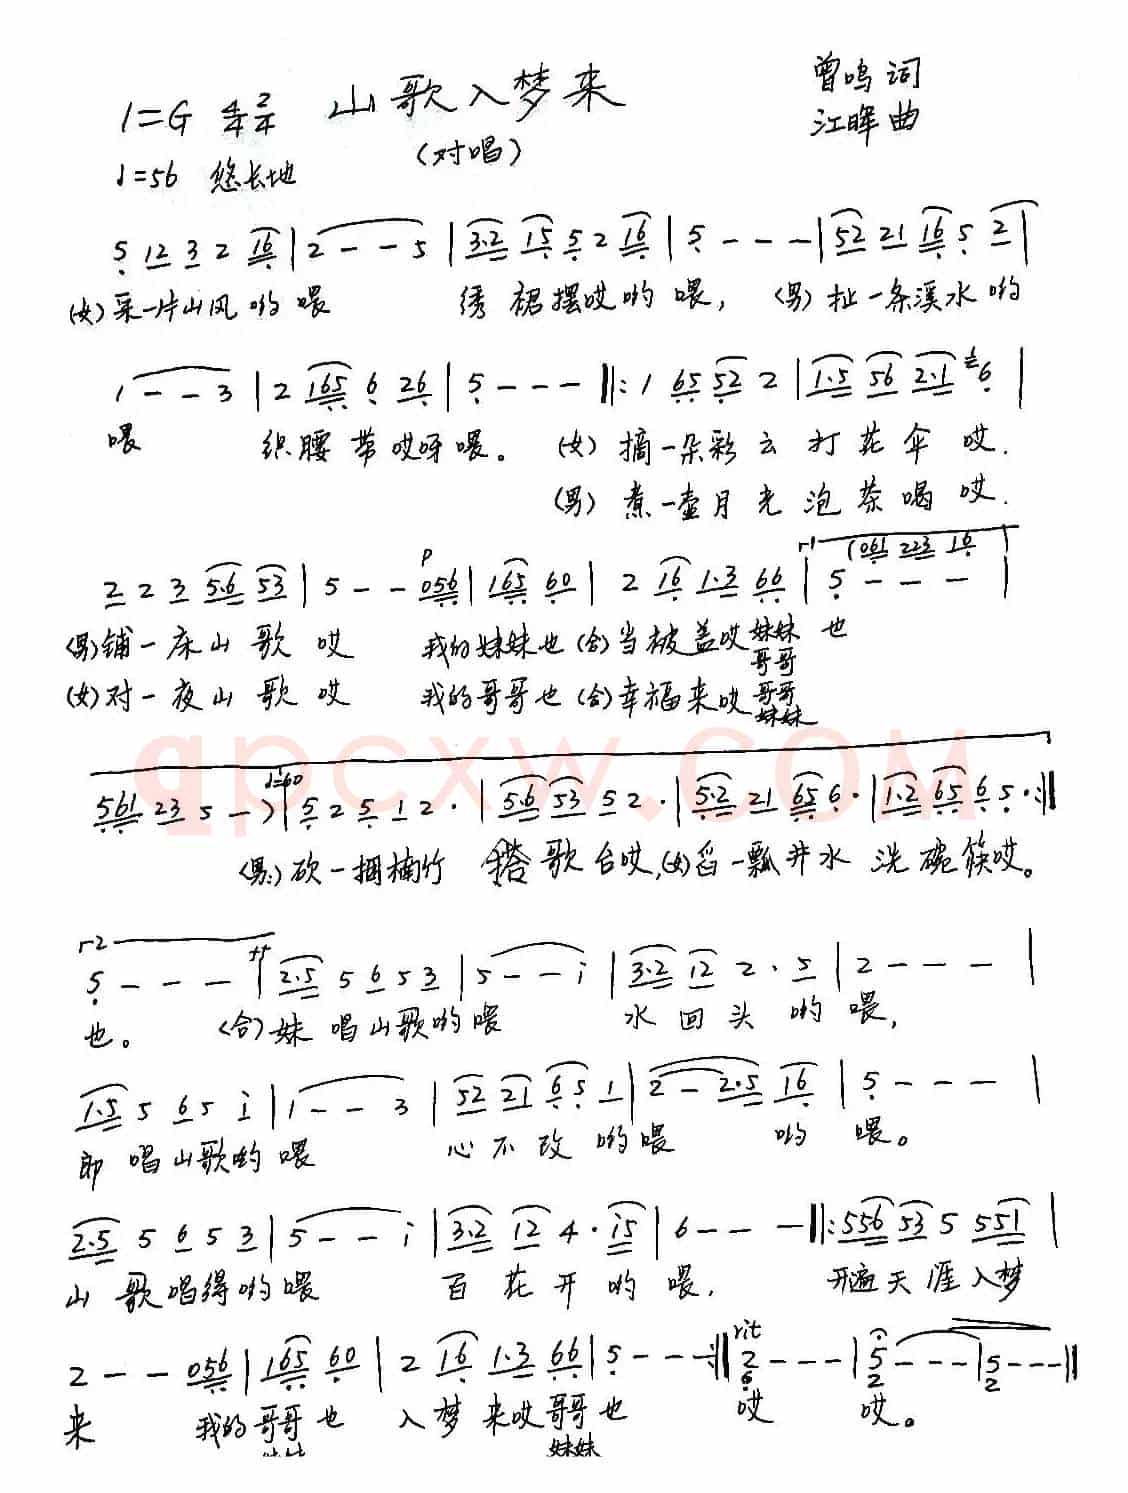 山歌入梦来
曾鸣 词
1=G 4/4 2/4
江晖 曲
(对唱)
♩=56 悠长地
5 12 3 2 16 | 2 - - 5 | 3·2 15 5 2 16 | 5 - - - | 52 21 16 5 2 |
(女) 采一片山风哟喂 绣裙摆哎哟喂, (男) 扯一条溪水哟
1 - - 3 | 2 165 6 26 | 5 - - - ‖: 1 65 52 2 | 1·5 56 2·1 6 |
喂 织腰带哎呀喂。 (女) 摘一朵彩云打花伞哎.
(男) 煮一壶月光泡茶喝哎.
p (061 223 16
2 2 3 5·6 53 | 5 - - 056 | 165 60 | 2 16 1·3 66 | 5 - - - |
(男) 铺一床山歌哎 我的妹妹也 (合) 当被盖哎 妹妹 也
哥哥
(女) 对一夜山歌哎 我的哥哥也 (合) 幸福来哎 哥哥
妹妹
qpcxw.COM
♩=60
561 23 5 - ) | 5 2 5 1 2· | 5·6 53 5 2· | 5·2 21 65 6· | 1·2 65 6 5· :‖
(男) 砍一捆楠竹 搭歌台哎, (女) 舀一瓢井水洗碗筷哎。
r2
5 - - - | 2·5 5 6 5 3 | 5 - - i | 3·2 12 2· 5 | 2 - - - |
也。 (合) 妹唱山歌哟喂 水回头哟喂,
1·5 5 6 5 i | 1 - - 3 | 52 21 6 5 1 | 2 - 2·5 16 | 5 - - - |
郎唱山歌哟喂 心不改哟喂 哟喂。
2·5 5 6 5 3 | 5 - - i | 3·2 12 4· i5 | 6 - - - ‖: 556 53 5 551 |
山歌唱得哟喂 百花开哟喂, 开遍天涯入梦
rit
2 - - 056 | 165 60 | 2 16 1·3 66 | 5 - - - :‖ 2 - - - | 5 - - - | 5 - - - ‖
6 2 2
来 我的哥哥也 入梦来哎哥哥也 哎 哎。
妹妹